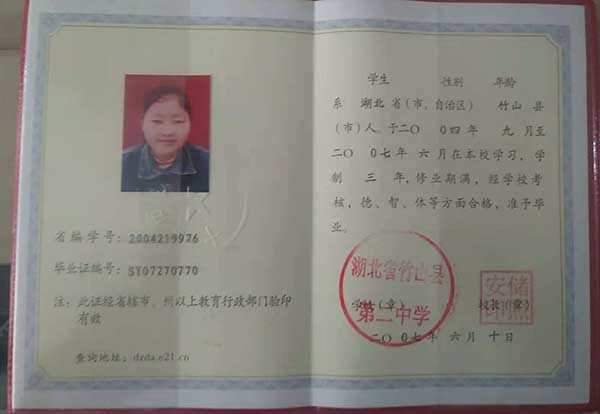 省编学号：2004219976
毕业证编号：SY07270770
注：此证经省辖市、州以上教育行政部门验印
有效
查询地址：dzda.e21.cn
学生 性别 年龄
系 湖北省(市、自治区) 竹山县
(市)人、于二〇〇四年 九月至
二〇〇七年 六月在本校学习，学
制 三 年，修业期满，经学校考
核，德、智、体等方面合格，准予毕
业。
湖北省竹山县
第二中学
学校(章) 校长(章)
二〇〇七年 六月 十日